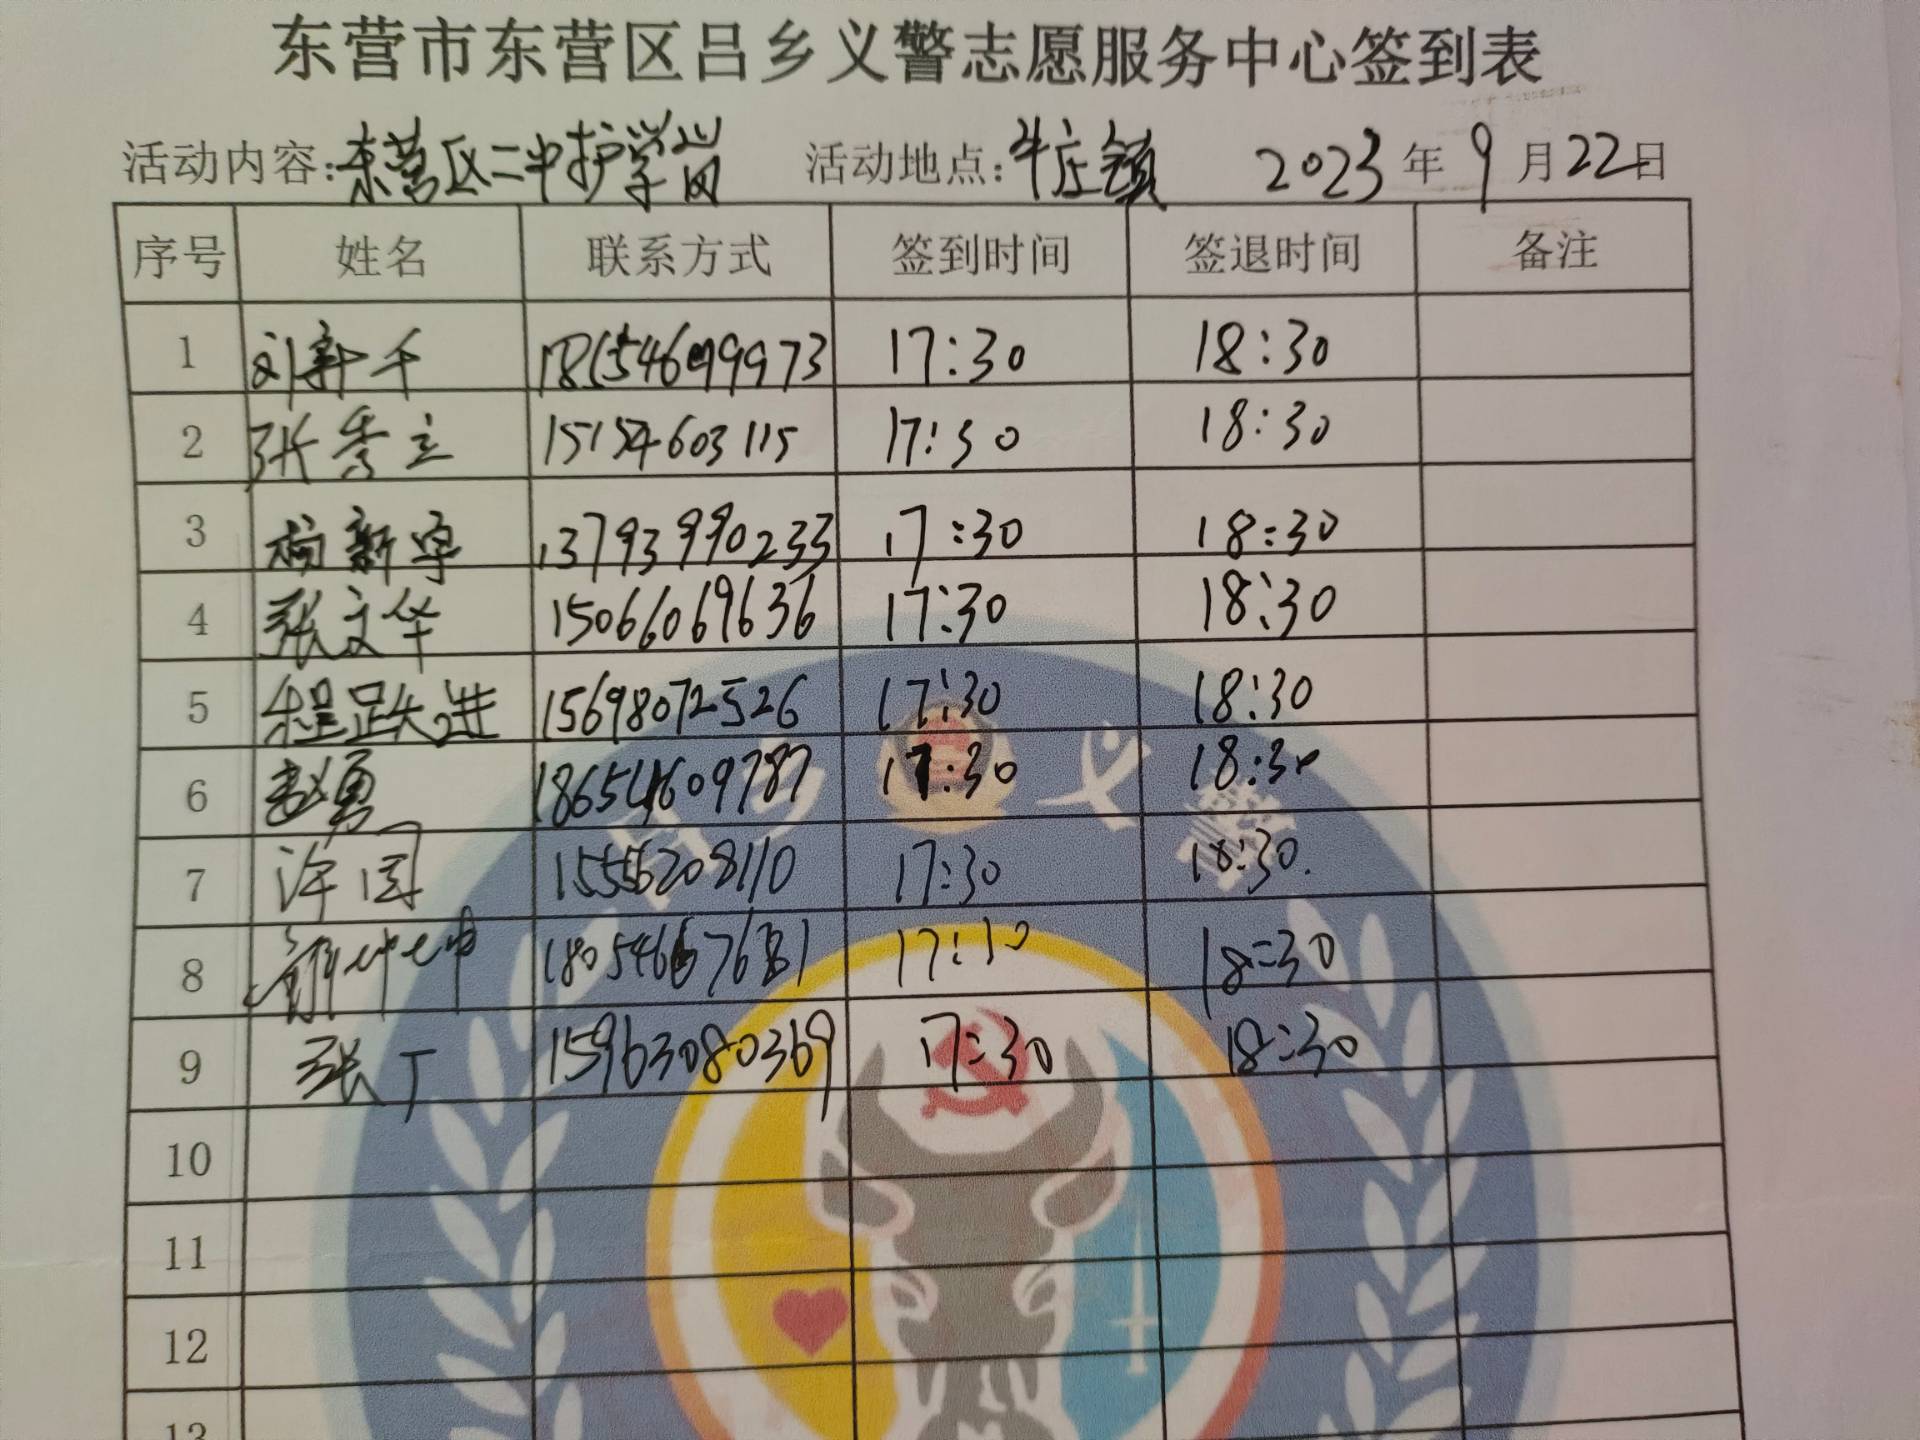 东营市东营区吕乡义警志愿服务中心签到表
活动内容:东营区二中护学岗 活动地点:牛庄镇 2023年9月22日
序号 姓名 联系方式 签到时间 签退时间 备注
1 刘新千 17:30 18:30
2 张秀立 15154603115 17:30 18:30
3 杨新军 13793990233 17:30 18:30
4 张文华 15066069636 17:30 18:30
5 程跃进 15698072526 17:30 18:30
6 赵勇 18654609787 17:30 18:30
7 许国 15556208110 17:30 18:30.
8 17:30 18:30
9 张丁 15963080369 17:30 18:30
10
11
12
13
吕乡义警